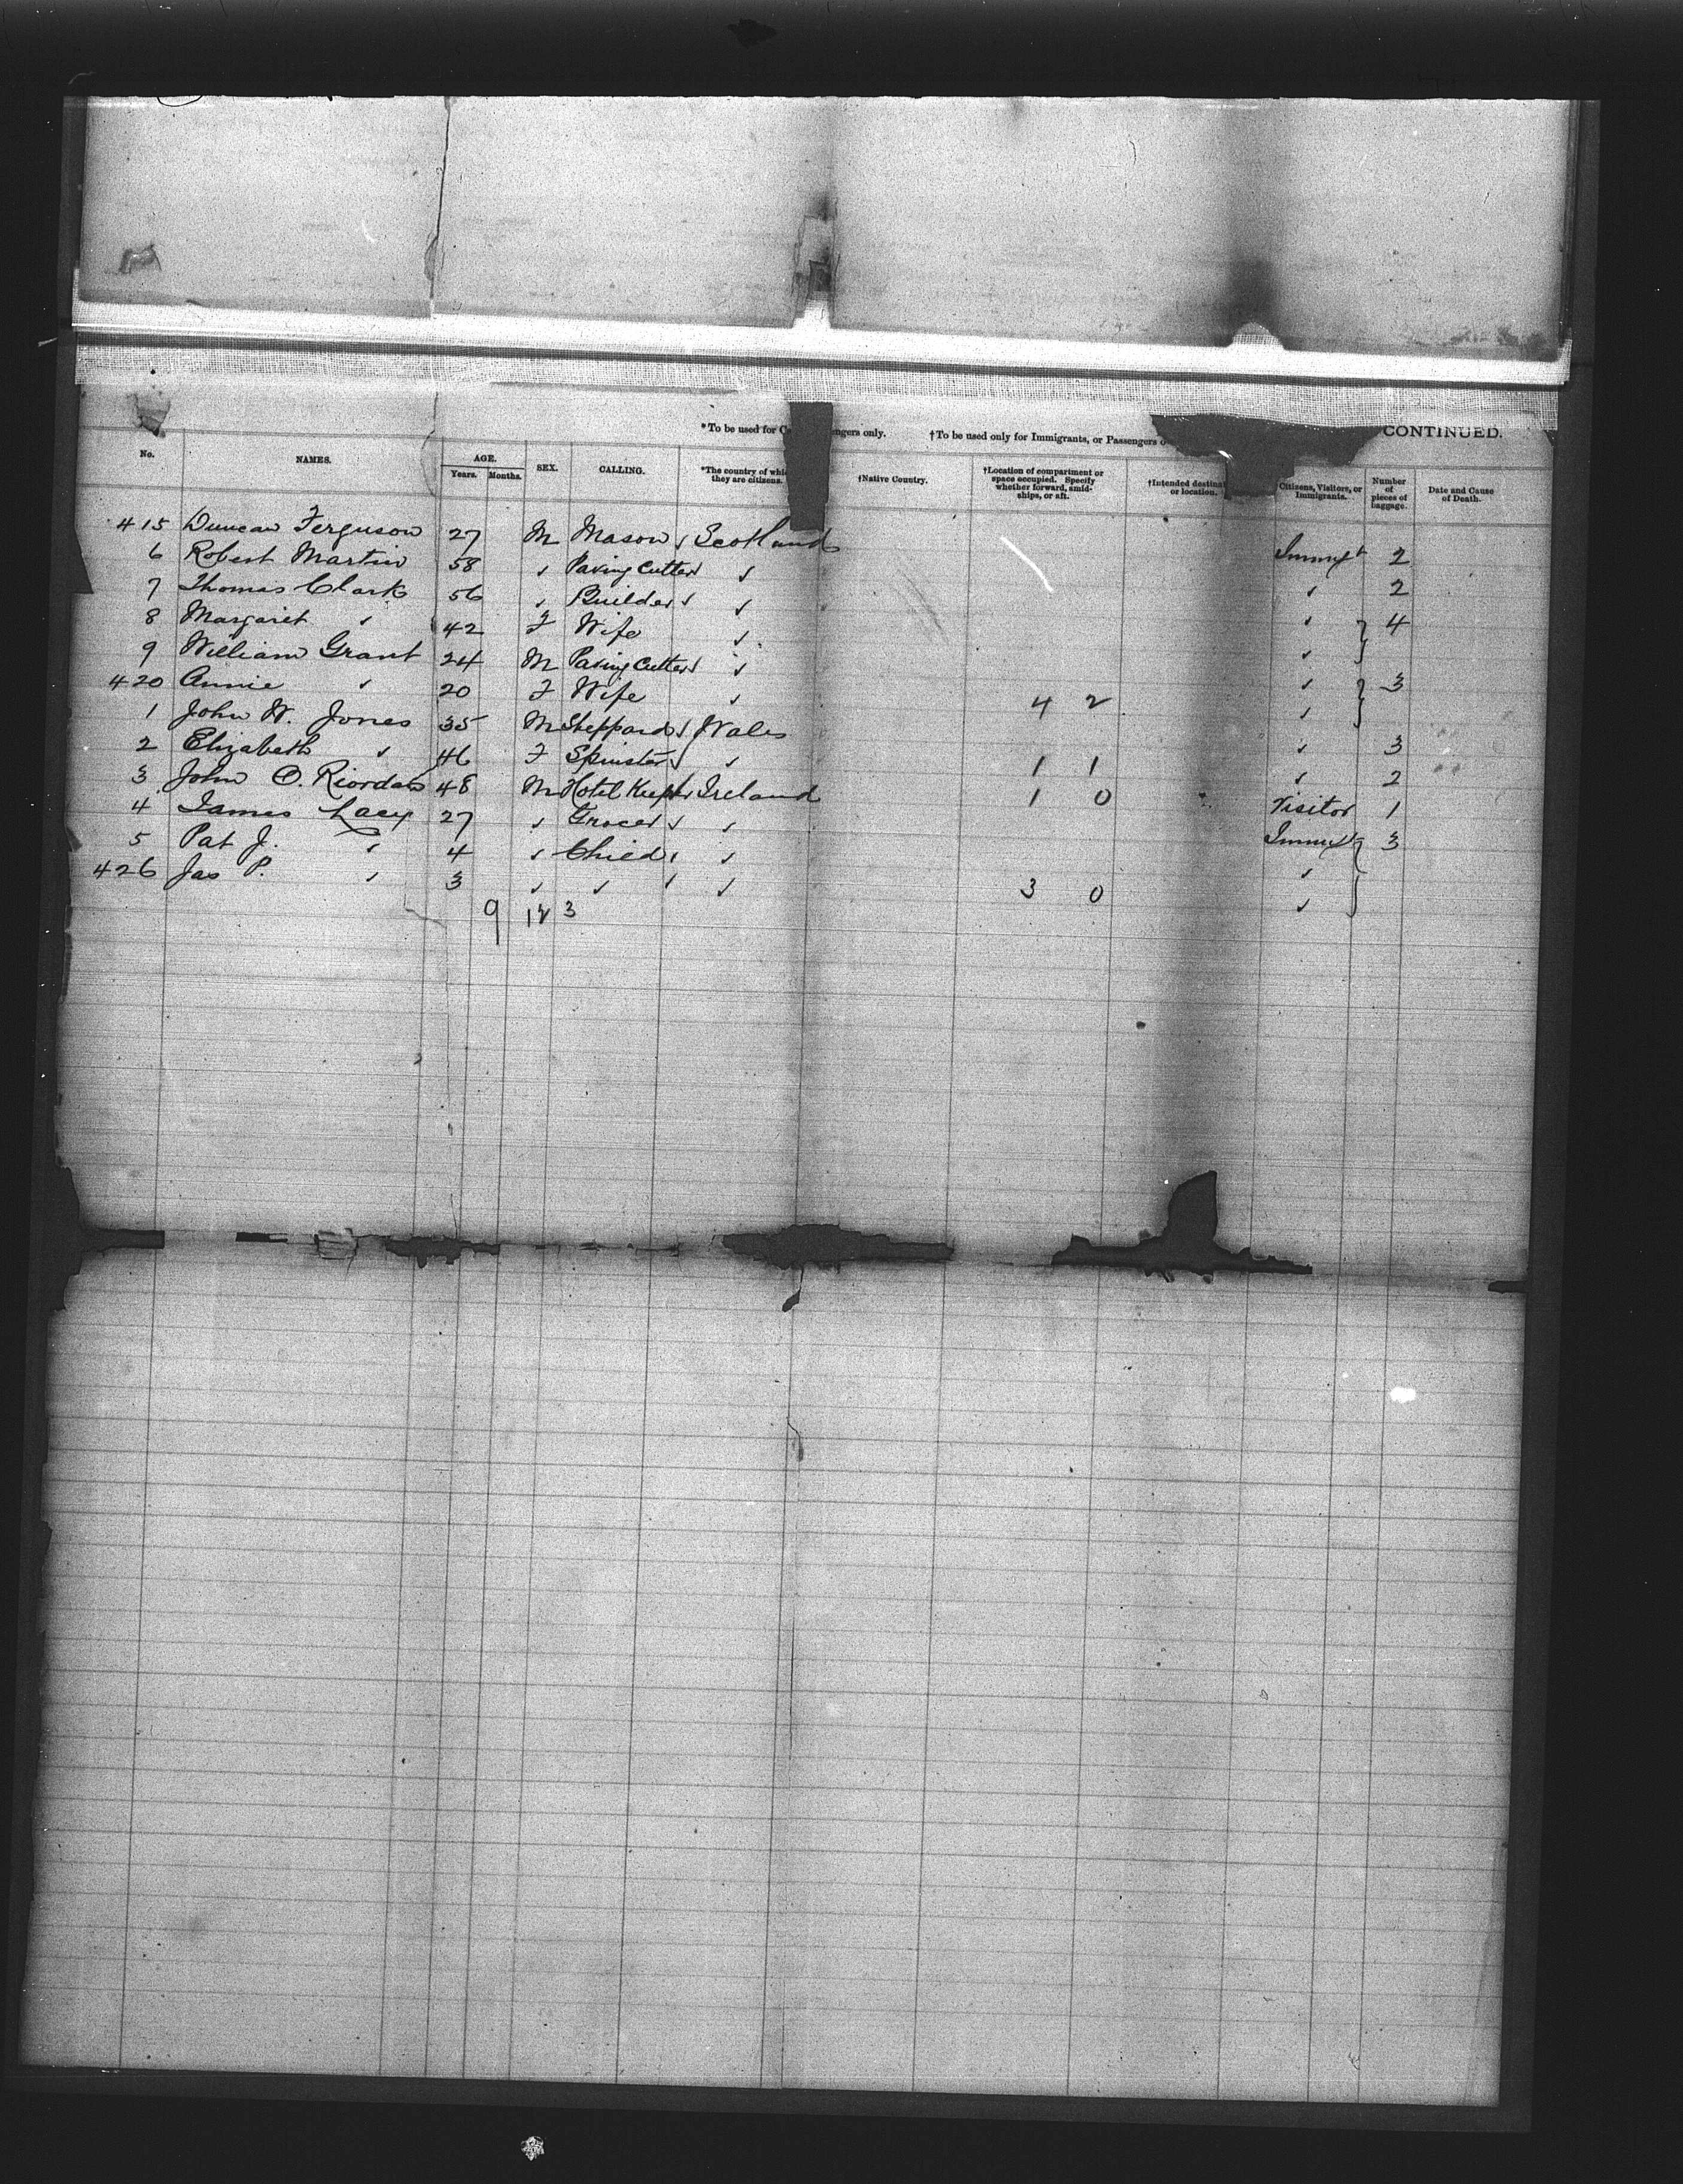 *To be used for C ngers only. †To be used only for Immigrants, or Passengers o CONTINUED.
No. NAMES. AGE. Years. Months. SEX. CALLING. *The country of whi they are citizens. †Native Country. †Location of compartment or space occupied. Specify whether forward, amid-ships, or aft. †Intended destinat or location. Citizens, Visitors, or Immigrants. Number of pieces of baggage. Date and Cause of Death.
415 Duncan Ferguson 27 M Mason Scotland Immgt 2
6 Robert Martin 58 " Paving Cutter " " 2
7 Thomas Clark 56 " Builder " " 4
8 Margaret " 42 F Wife " "
9 William Grant 24 M Paving Cutter " " 3
420 Annie " 20 F Wife " 4 2 "
1 John W. Jones 35 M Sheppard Wales " 3
2 Elizabeth " 46 F Spinster " 1 1 " 2
3 John O. Riordan 48 M Hotel Keeper Ireland 1 0 Visitor 1
4 James Lacey 27 " Grocer " Immgt 3
5 Pat J. " 4 " Child " "
426 Jas P. " 3 " " " 3 0 "
9 12 3